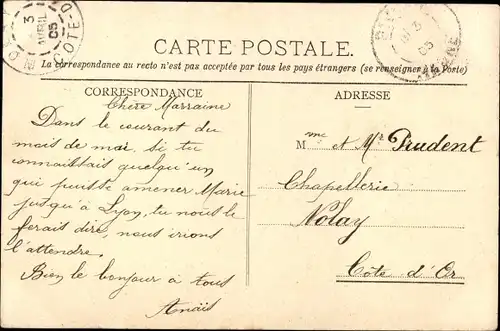 3
AVRIL
05
COTE-D
3
05
CARTE POSTALE.
La correspondance au recto n'est pas acceptée par tous les pays étrangers (se renseigner à la Poste)
CORRESPONDANCE
Chère Marraine
Dans le courant du
mois de mai, si tu
connaissais quelqu'un
qui puisse amener Marie
jusqu'à Lyon, tu nous le
ferais dire, nous irions
l'attendre.
Bien le bonjour à tous
Anaïs
ADRESSE
Mme et Mr Prudent
Chapellerie
Nolay
Côte d'Or